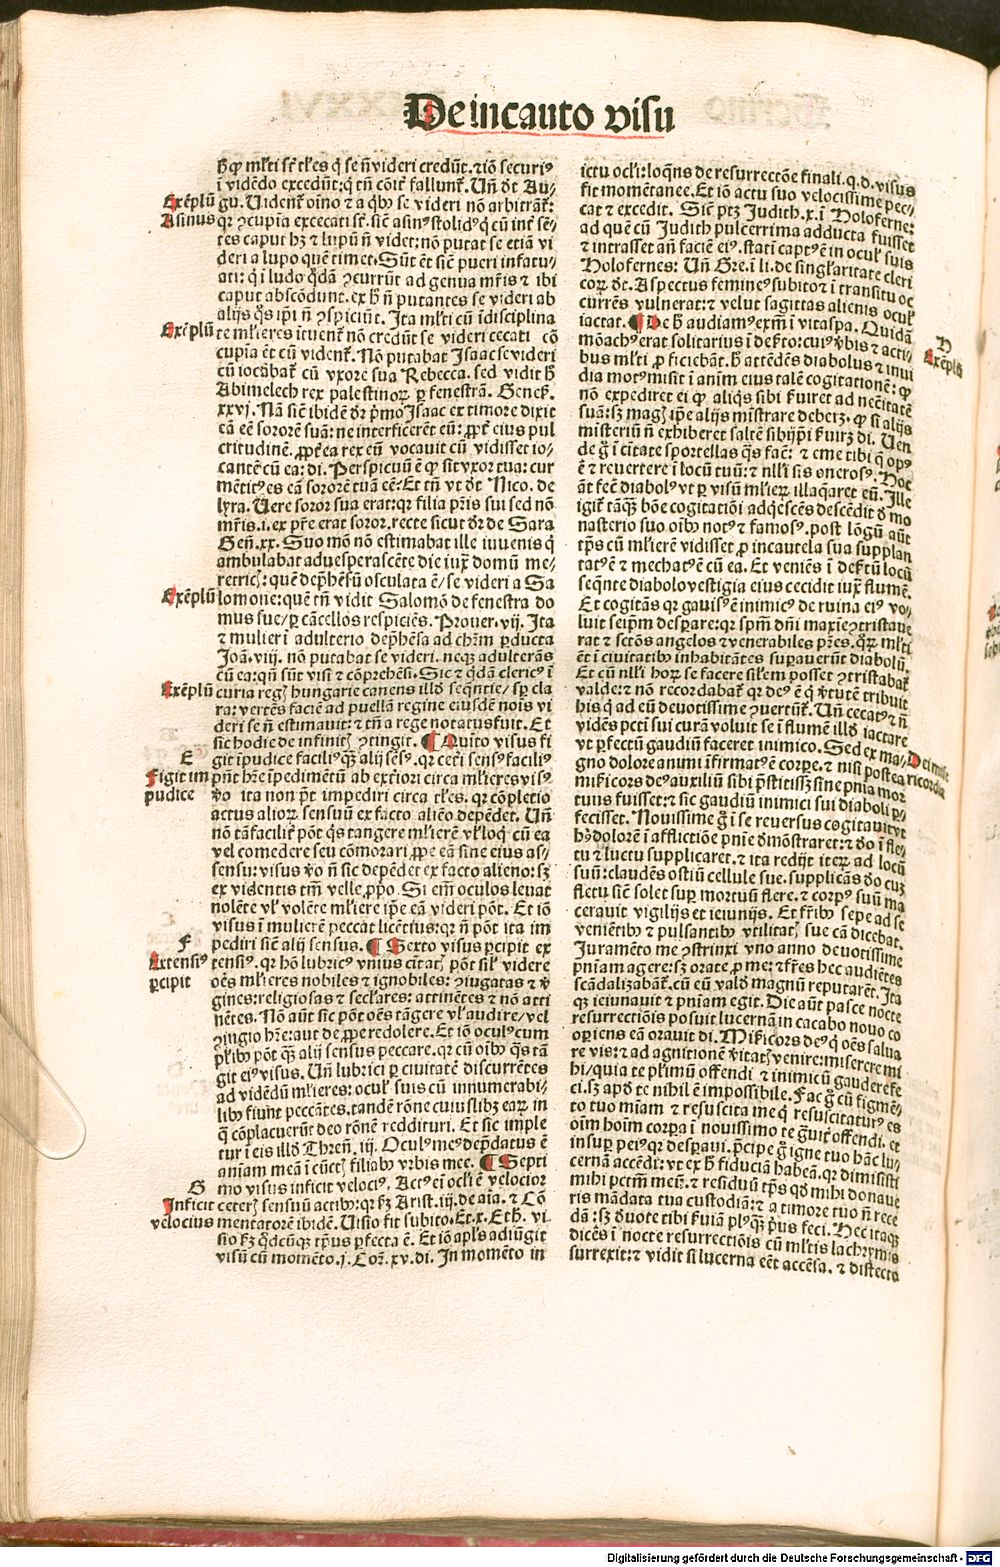 De incauto visu
hꝰ qꝫ ml̃ti sũt tl̃es q̃ se nõ videri credũt. ⁊ iõ securiꝰ
ĩ vidẽdo excedũt: q̃ tñ cõit̃ fallunt̃. Uñ dt̃ Au/
Exẽplũ gu. Uident̃ oĩno ⁊ a q̃bꝰ se videri nõ arbitrãt̃:
Asinus qꝛ ꝯcupĩa excecati sũt. sic̃ asinꝰ stolidꝰ q̃ cũ int̃ sẽ/
tes caput hꝫ ⁊ lupũ ñ videt: nõ putat se etiã vi
deri a lupo quẽ timet. Sũt et̃ sic̃ pueri infatu/
ati: q̃ ĩ ludo q̃dã ꝯcurrũt ad genua mr̃is ⁊ ibi
caput abscõdunt. ex hꝰ ñ putantes se videri ab
alijs q̃s ip̃i ñ ꝯspiciũt. Ita ml̃ti cũ ĩdisciplina
Exẽplũ te ml̃ieres ĩtuent̃ nõ credũt se videri cecati cõ
cupĩa et̃ cũ vident̃. Nõ putabat Isaac se videri
cũ iocabat̃ cũ vxore sua Rebecca. sed vidit hꝰ
Abimelech rex palestinoꝝ ꝑ fenestrã. Genes̃.
xxvj. Nã sic̃ ibidẽ dr̃ pꝰmo Isaac ex timore dixit
eã eẽ sororẽ suã: ne interficerẽt eũ: ꝓpt̃ eius pul
critudinẽ. ꝓpt̃ ea rex eũ vocauit cũ vidisset io/
cantẽ cũ ea: di. Perspicuũ ẽ qꝫ sit vxor tua: cur
mẽtitꝰ es eã sororẽ tuã eẽ? Et tñ vt dt̃ Nico. de
lyra. Uere soror sua erat: qꝛ filia pr̃is sui sed nõ
mr̃is. i. ex pr̃e erat soror. recte sicut dr̃ de Sara
Geñ. xx. Suo mõ nõ estimabat ille iuuenis q̃
ambulabat aduesperascẽte die iux̃ domũ me/
retricꝭ: quẽ dep̃hẽsũ osculata ẽ/ se videri a Sa
Exẽplũ lomone: quẽ tñ vidit Salomõ de fenestra do
mus sue/ ꝑ cãcellos respiciẽs. Prouer. vij. Ita
⁊ mulier ĩ adulterio dep̃hẽsa ad chr̃m ꝑducta
Joã. viij. nõ putabat se videri. neqꝫ adulterãs
cũ ea: qñ sũt visi ⁊ cõprehẽsi. Sic ⁊ q̃dã clericꝰ ĩ
Exẽplũ curia regꝭ hungarie canens illđ seq̃ntie/ sꝑ cla
ra: vertẽs faciẽ ad puellã regine eiusdẽ nois vi
deri se ñ estimauit: ⁊ tñ a rege notatus fuit. Et
sic̃ hodie de infinitꝭ ꝯtingit. ¶ Quĩto visus fi
E git ĩpudice faciliꝰ qꝫ alij sẽsꝰ. qꝛ cet̃i sensꝰ faciliꝰ
Figit im pñt hr̃e ĩpedimẽtũ ab ext̃iori circa ml̃ieres visꝰ
pudice ꝟo ita non pt̃ impediri circa tl̃es. qꝛ cõpletio
actus alioꝝ sensuũ ex facto alieõ depẽdet. Uñ
nõ tã facilit̃ põt q̃s tangere ml̃ierẽ vl̃ loq̃ cũ ea
vel comedere seu cõmorari ꝓpe eã sine eius as/
sensu: visus ꝟo ñ sic depẽdet ex facto alieno: sꝫ
ex videntis tm̃ velle ꝓp̃o. Si em̃ oculos leuat
nolẽte vl̃ volẽte ml̃iere ip̃e eã videri põt. Et iõ
visus ĩ mulierẽ peccat licẽtiꝰ: qꝛ ñ põt ita im
F pediri sic̃ alij sensus. ¶ Sexto visus ꝑcipit ex
Extensiꝰ tensiꝰ. qꝛ hõ lubricꝰ vniꝰ ciuitatꝭ põt sil̃ videre
ꝑcipit oẽs ml̃ieres nobiles ⁊ ignobiles: ꝯiugatas ⁊ ꝟ
gines: religiosas ⁊ seclares: attinẽtes ⁊ nõ atti
nẽtes. Nõ aũt sic põt oẽs tãgere vl̃ audire/ vel
ꝯingio hr̃e: aut de ꝓpe redolere. Et iõ oculꝰ cum
pl̃ibꝰ põt qꝫ alij sensus peccare. qꝛ cũ oĩbꝰ q̃s tã
git eiꝰ visus. Uñ lubrici ꝑ ciuitatẽ discurrẽtes
ad vidẽdũ ml̃ieres: ocul̃ suis cũ innumerabi/
libꝰ fiunt peccãtes. tandẽ rõne cuiuslibꝫ eaꝝ in
q̃ cõplacuerũt deo rõnẽ reddituri. Et sic imple
tur ĩ eis illđ Threñ. iij. Oculꝰ meꝰ dep̃datus ẽ
aniam meã ĩ cũctꝭ filiabꝰ vrbis mee. ¶ Septi
G mo visus inficit velociꝰ. Actꝰ ei oclĩ ẽ velocior
Inficit ceterꝭ sensuũ actibꝰ: qꝛ fꝫ Arist. iij. de aĩa. ⁊ Cõ
velocius mentatorẽ ibidẽ. Uisio fit subito. Et. x. Eth. vi.
sio fꝫ q̃dcũqꝫ tp̃us ꝑfecta ẽ. Et iõ apl̃s adiũgit
visũ cũ momẽto. j. Coꝝ. xv. di. In momẽto in
ictu ocli: loq̃ns de resurrectõe finali. q. d. visus
fit momẽtanee. Et iõ actu suo velocissime pec/
cat ⁊ excedit. Sic̃ ptꝫ Judith. x. ĩ Holoferne:
ad quẽ cũ Judith pulcerrima adducta fuisset
⁊ intrasset añ faciẽ eiꝰ. statĩ captꝰ ẽ in ocul̃ suis
Holofernes: Uñ Gre. ĩ li. de singl̃aritate cleri
coꝝ dt̃. Aspectus femineꝰ subito ⁊ ĩ transitu oc
currẽs vulnerat: ⁊ velut sagittas alienis ocul̃
iactat. ¶ De hꝰ audiamꝰ exm̃ ĩ vitaspa. Quidã
H
Exẽplũ mõachꝰ erat solitarius ĩ def̃to: cuiꝰ ꝟbis ⁊ acti/
bus ml̃ti ꝓficiebãt. hꝰ attẽdẽs diabolus ⁊ inui
dia motꝰ misit ĩ anim̃ eius talẽ cogitationẽ: qꝫ
nõ expediret ei qꝫ aliq̃s sibi ẽuiret ad nec̃itatẽ
suã: sꝫ magꝭ ip̃e alijs mĩstrare deberꝫ. qꝫ si alijs
misteriũ ñ exhiberet saltẽ sibijp̃i ẽuirꝫ di. Uen
de g̃ ĩ ciuitate sportellas q̃s facẽ: ⁊ eme tibi q̃ opꝰ
ẽ ⁊ reuertere ĩ locũ tuũ: ⁊ nl̃li sis onerosꝰ. Hoc
ãt fec̃ diabolꝰ vt ꝑ visũ ml̃ieꝝ illaq̃aret eũ. Ille
igit̃ tãqꝫ bõe cogitatiõi adq̃escẽs descẽdit đ mo
nasterio suo oĩbꝰ notꝰ ⁊ famosꝰ. post lõgũ aũt
tp̃s cũ ml̃ierẽ vidisset ꝓ incautela sua supplan
tatꝰ ẽ ⁊ mechatꝰ ẽ cũ ea. Et veniẽs ĩ def̃tũ locũ
seq̃nte diabolo vestigia eius cecidit iux̃ flumẽ.
Et cogitãs qꝛ gauisꝰ ẽ inimicꝰ de ruina eiꝰ vo/
luit seip̃m desꝑare: qꝛ spm̃ dñi maxĩe ꝯtristaue
rat ⁊ sctõs angelos ⁊ venerabiles pr̃es. q̃ꝝ ml̃ti
et̃ ĩ ciuitatibꝰ inhabitãtes suꝑauerũt diabolũ.
Et cũ nl̃li hoꝝ se facere sil̃em posset ꝯtristabat̃
valde: ⁊ nõ recordabat̃ qꝛ deꝰ ẽ q̃ ꝟtutẽ tribuit
his q̃ ad eũ deuotissime ꝯuertũt̃. Uñ cecatꝰ ⁊ ñ
vidẽs pcti sui curã voluit se ĩ flumẽ illđ iactare
Dei mise vt ꝑfectũ gaudiũ faceret inimico. Sed ex ma/
ricordia gno dolore animi ĩfirmatꝰ ẽ corꝑe. ⁊ nisi postea
mis̃icors deꝰ auxiliũ sibi p̃stitissꝫ sine pnĩa mor
tuus fuisset: ⁊ sic gaudiũ inimici sui diaboli ꝑ/
fecisset. Nouissime g̃ ĩ se reuersus cogitauit vt
hꝰ dolorẽ ĩ afflictiõe pnĩe dmõstraret: ⁊ đo ĩ fle/
tu ⁊ luctu supplicaret. ⁊ ita redijt iteꝝ ad locũ
suũ: claudẽs ostiũ cellule sue. supplicãs đo cuꝫ
fletu sic̃ solet suꝑ mortuũ flere. ⁊ corpꝰ suũ ma
cerauit vigilijs et ieiunijs. Et fr̃ibꝰ sepe ad se
veniẽtibꝰ ⁊ pulsantibꝰ vtilitatꝭ sue cã dicebat.
Juramẽto me ꝯstrinxi vno anno deuotissime
pnĩam agere: sꝫ orate ꝓ me: ⁊ fr̃es hec audiẽtes
scãdalizabãt̃. cũ eũ valđ magnũ reputarẽt. Ita
qꝫ ieiunauit ⁊ pnĩam egit. Die aũt pasce nocte
resurrectiõis posuit lucernã in cacabo nouo co
oꝑiens eã orauit di. Mis̃icors deꝰ q̃ oẽs salua
re vis: ⁊ ad agnitionẽ ꝟitatꝭ venire: miserere mi
hi/ quia te pl̃imũ offendi ⁊ inimicũ gaudere fe
ci. sꝫ apđ te nihil ẽ impossibile. Fac g̃ cũ figmẽ/
to tuo mĩam ⁊ resuscita me q̃ resuscitaturꝰ es
oĩm hoĩm corpa ĩ nouissimo te g̃uit̃ offendi. et
insuꝑ peiꝰ qꝛ desꝑaui. p̃cipe g̃ igne tuo hãc lu/
cernã accẽdi: vt ex hꝰ fiduciã habeã. qꝛ dimisisti
mihi pctm̃ meũ. ⁊ residuũ tp̃s qđ mihi donaue
ris mãdata tua custodiã: ⁊ a timore tuo ñ rece
dã: sꝫ đuote tibi ẽuiã plꝰqꝫ pꝰus feci. Hec itaqꝫ
dicẽs ĩ nocte resurrectiõis cũ ml̃tis lachrymis
surrexit: ⁊ vidit si lucerna eẽt accẽsa. ⁊ distecta
Digitalisierung gefördert durch die Deutsche Forschungsgemeinschaft - DFG